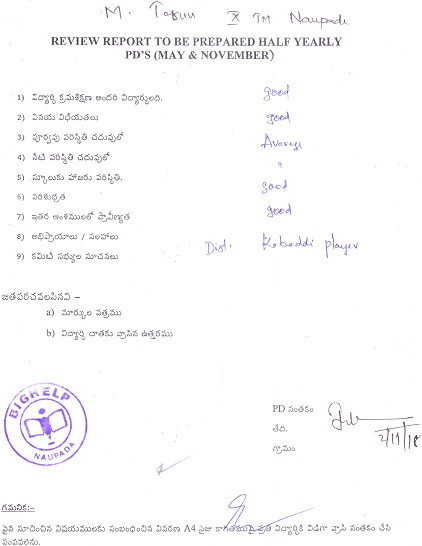 M. Tarun X TM Naupada
REVIEW REPORT TO BE PREPARED HALF YEARLY
PD'S (MAY & NOVEMBER)
1) విద్యార్థి క్రమశిక్షణ అందరి విద్యార్థులది. good
2) వినయ విధేయతలు good
3) పూర్వపు పరిస్థితి చదువులో Average
4) నేటి పరిస్థితి చదువులో "
5) స్కూలుకు హాజరు పరిస్థితి. good
6) పరిశుభ్రత
7) ఇతర అంశములలో ప్రావీణ్యత good
8) అభిప్రాయాలు / సలహాలు Dist. Kabaddi player
9) కమిటీ సభ్యుల సూచనలు
జతపరచవలసినవి –
a) మార్కుల పత్రము
b) విద్యార్థి దాతకు వ్రాసిన ఉత్తరము
BIGHELP
NAUPADA
PD సంతకం
తేది. 2/11/18
గ్రామం
గమనిక:-
పైన సూచించిన విషయములకు సంబంధించిన వివరణ A4 సైజు కాగితముపై ప్రతి విద్యార్థికి విడిగా వ్రాసి సంతకం చేసి
పంపవలెను.